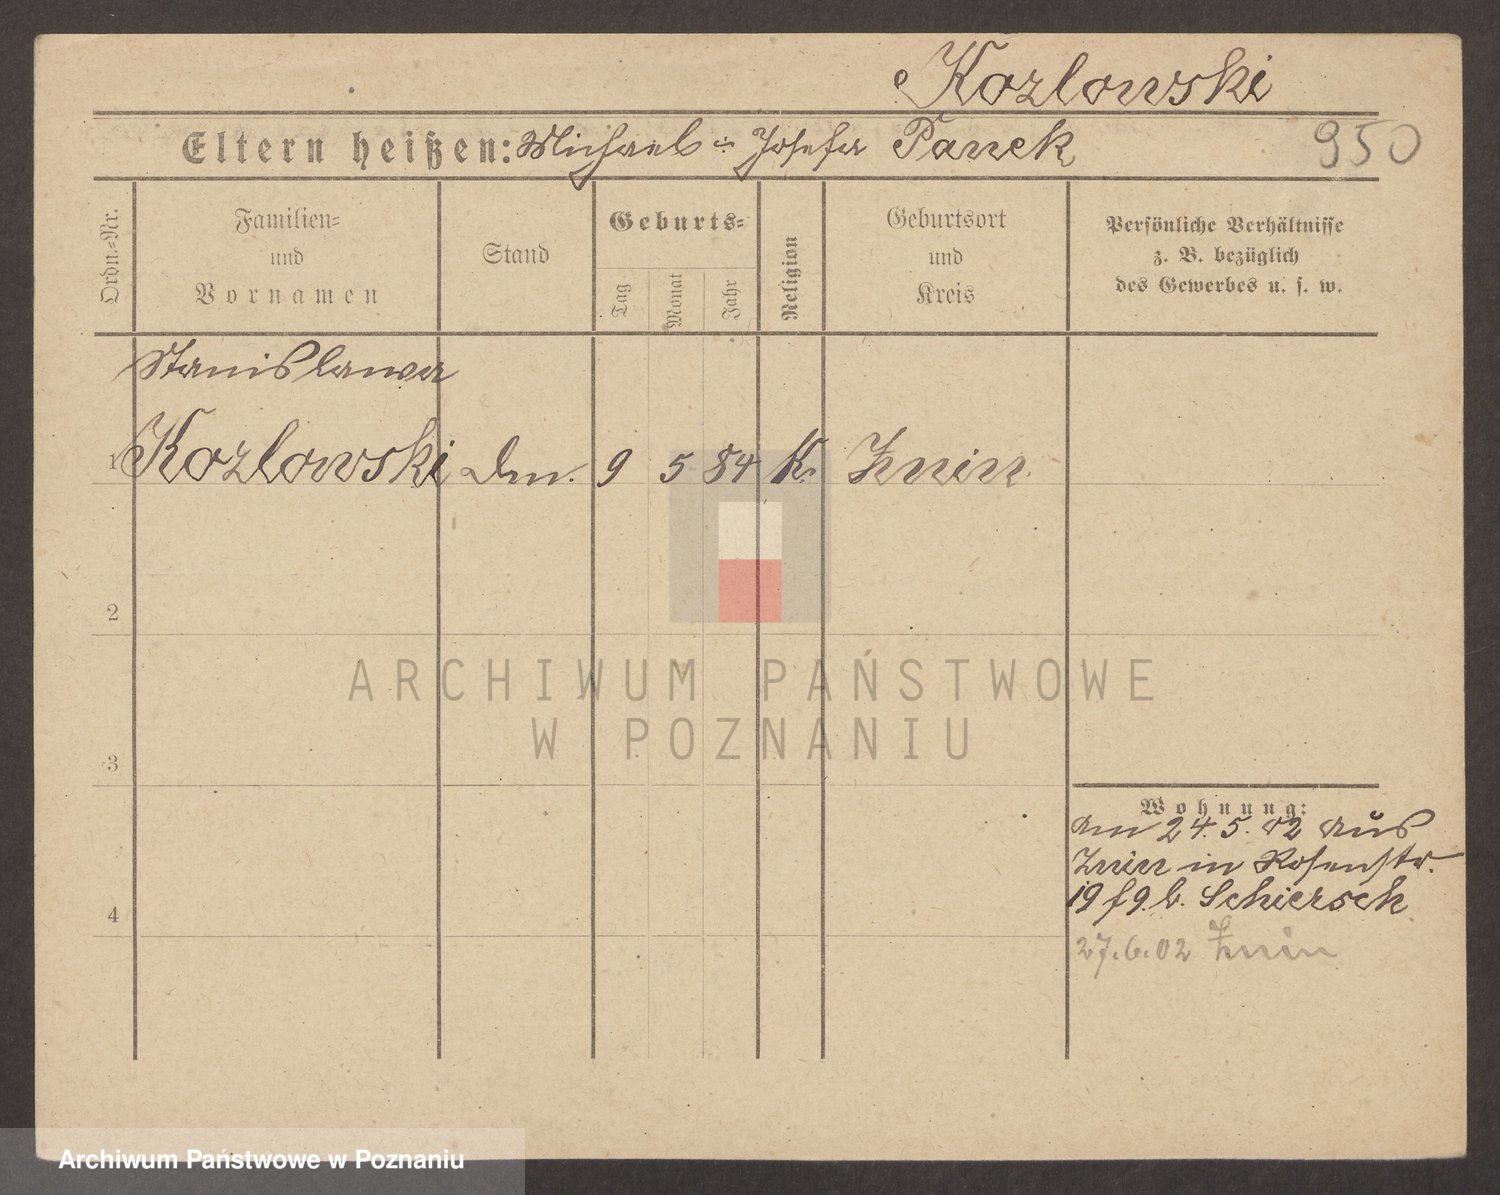 Kozlowski
Eltern heißen: Michael u. Josefa Panek
950
Ordn.=Nr.
Familien=
und
Vornamen
Stand
Geburts=
Tag
Monat
Jahr
Religion
Geburtsort
und
Kreis
Persönliche Verhältnisse
z. B. bezüglich
des Gewerbes u. s. w.
Stanislawa
1 Kozlowski 9 5 84 K. Znin
2
ARCHIWUM PAŃSTWOWE
W POZNANIU
3
Wohnung:
am 24.5.02 aus
Znin in Rosenstr.
19 b. Schiersch
4
27.6.02 Znin
Archiwum Państwowe w Poznaniu